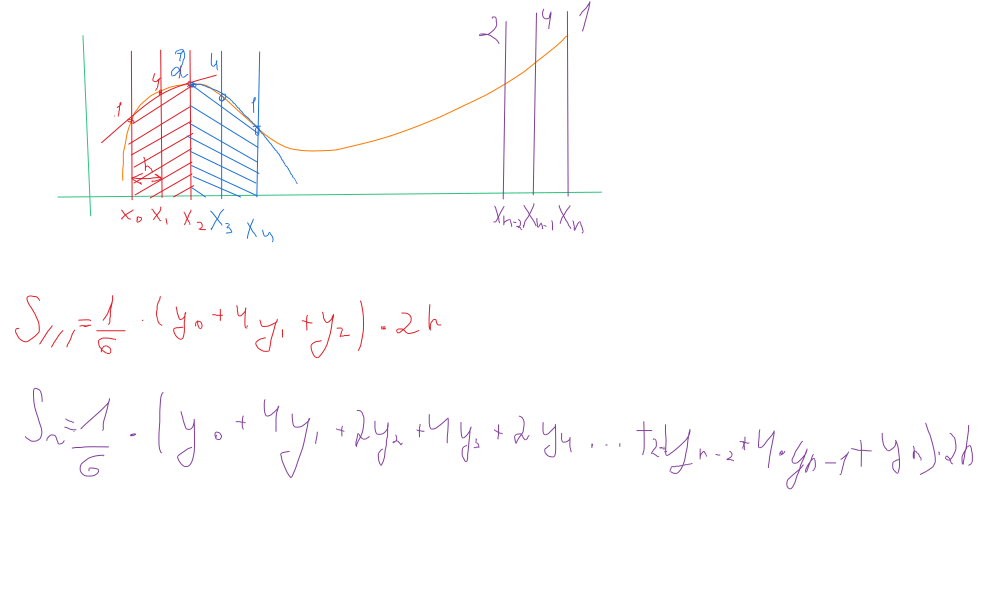 2 4 1
1 4 2 4 1
h
x₀ x₁ x₂ x₃ x₄ xₙ₋₂ xₙ₋₁ xₙ
S/// = 1/6 · (y₀ + 4y₁ + y₂) · 2h
S~ = 1/6 · (y₀ + 4y₁ + 2y₂ + 4y₃ + 2y₄ ... + 2·yₙ₋₂ + 4·yₙ₋₁ + yₙ)·2h